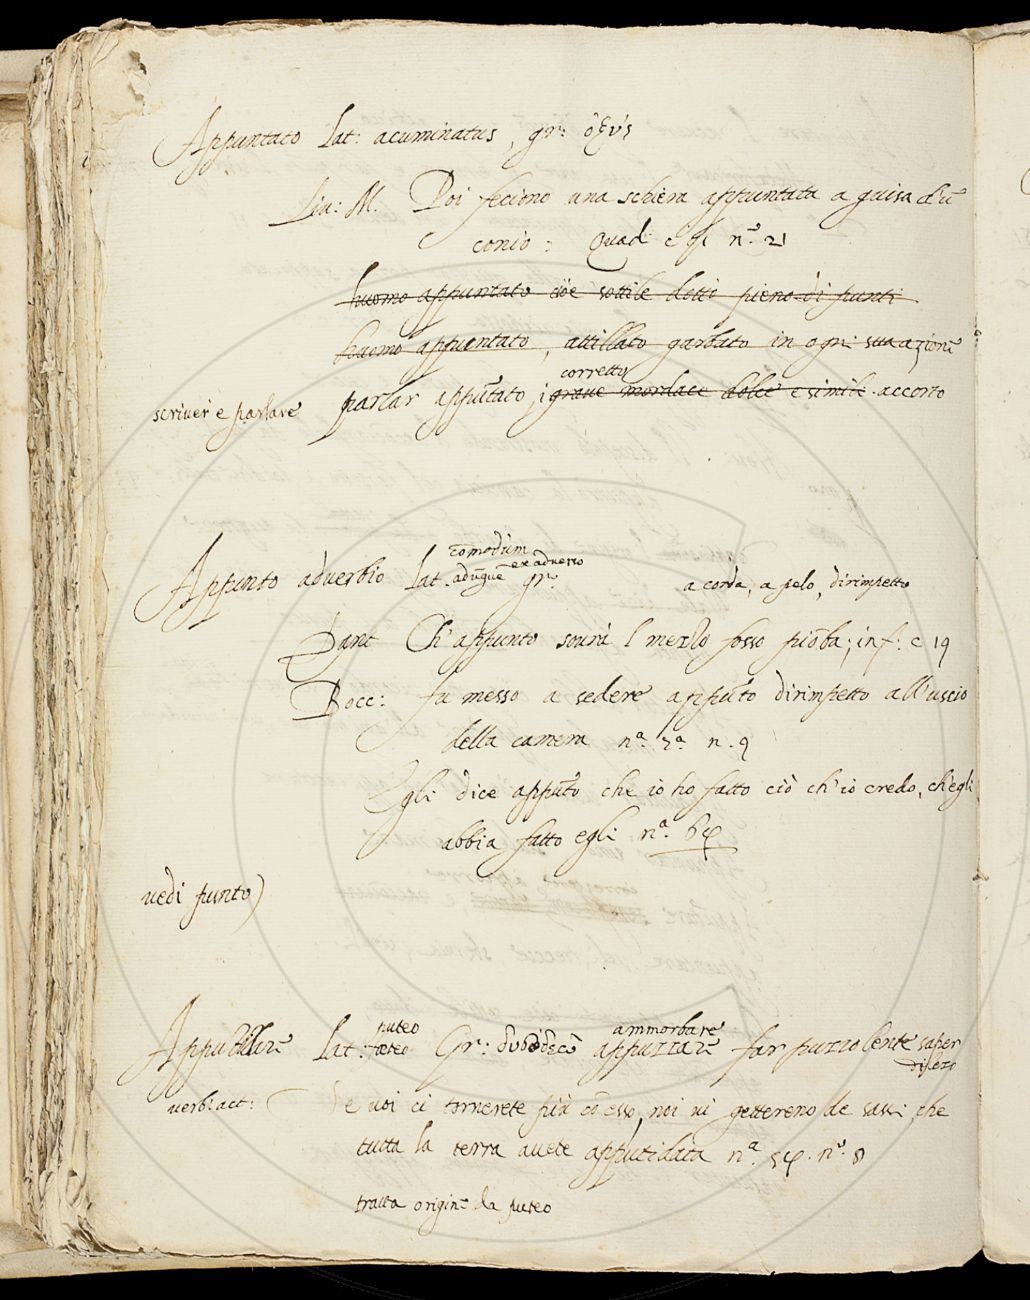 Appuntato Lat: acuminatus, gr: ὀξύς
Liv: M. Poi feciono una schiera appuntata a guisa d'ũ
conio: Quad n.º 21
huomo appuntato cioè sottile detto pieno di punti
huomo appuntato, attillato garbato in ogni sua azione
corretto
scriver e parlare parlar appũtato, grave mordace dolce e simile accorto
cõmodũm
Appunto adverbio Lat. adũque ex adverso gr. a corda, a pelo, dirimpetto
Dant Ch' appunto sovra l mezzo fosso piõba; inf: c 19
Bocc: fu messo a sedere appũto dirimpetto all'uscio
della camera nª. n. 9
Egli dice appũto che io ho fatto ciò ch'io credo, ch'egli
abbia fatto egli nª.
vedi punto)
puteo ammorbare
Lat: fœteo Gr: appuzzare far puzzolente saper
di lezo
verb: act: Se voi ci tornerete più cõ esso, noi vi gettereno de sassi, che
tutta la terra avete apputidata nª. n.º 8
tratta origine da puteo